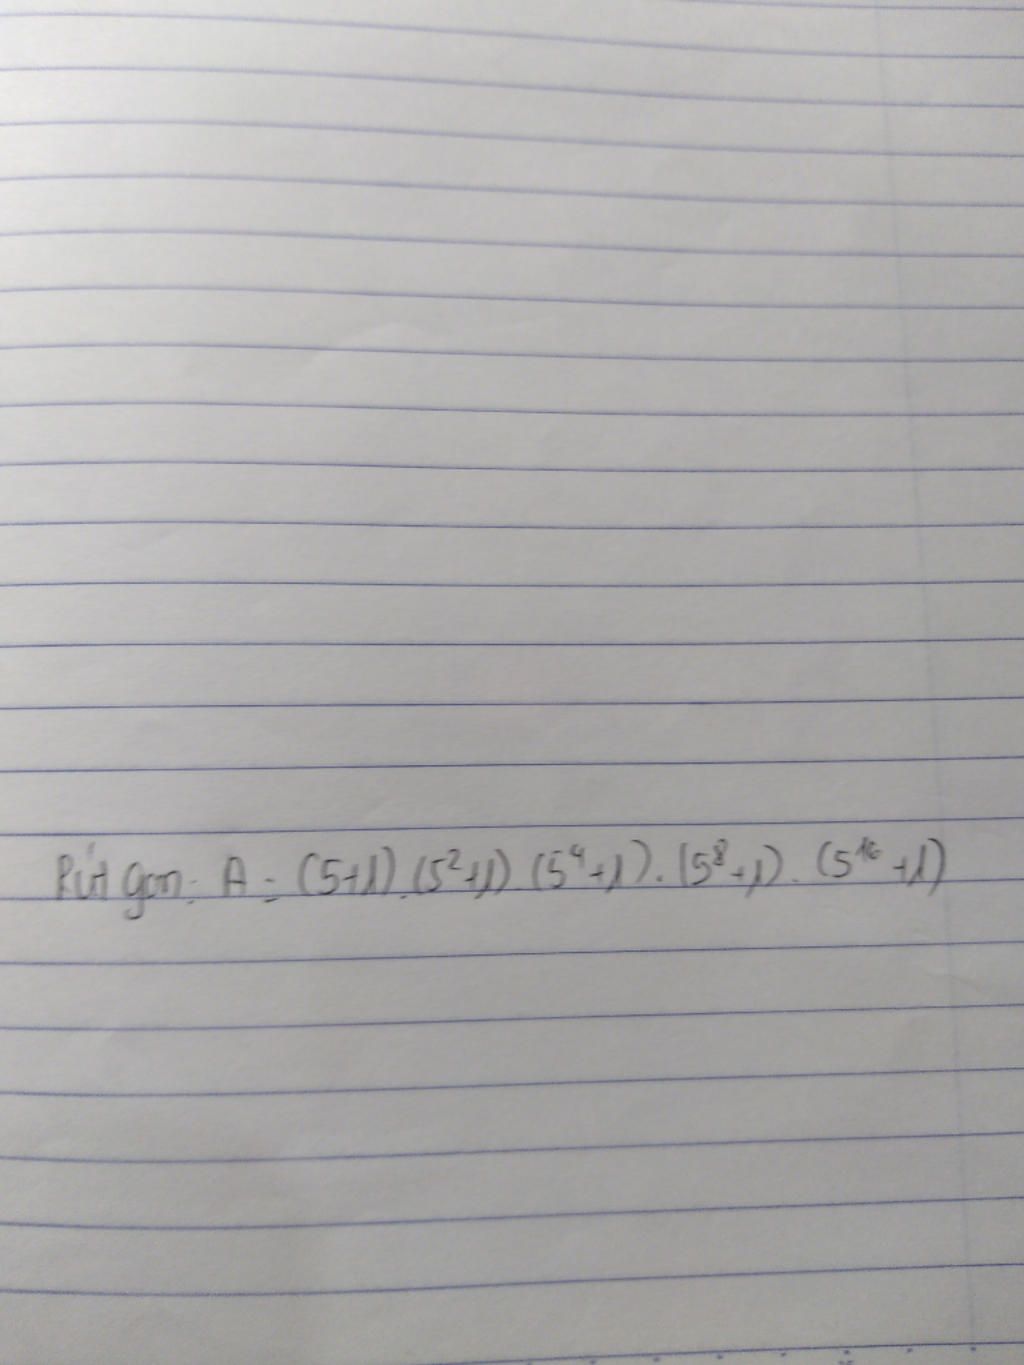 Rút gọn: A = (5+1).(5²+1).(5⁴+1).(5⁸+1).(5¹⁶+1)